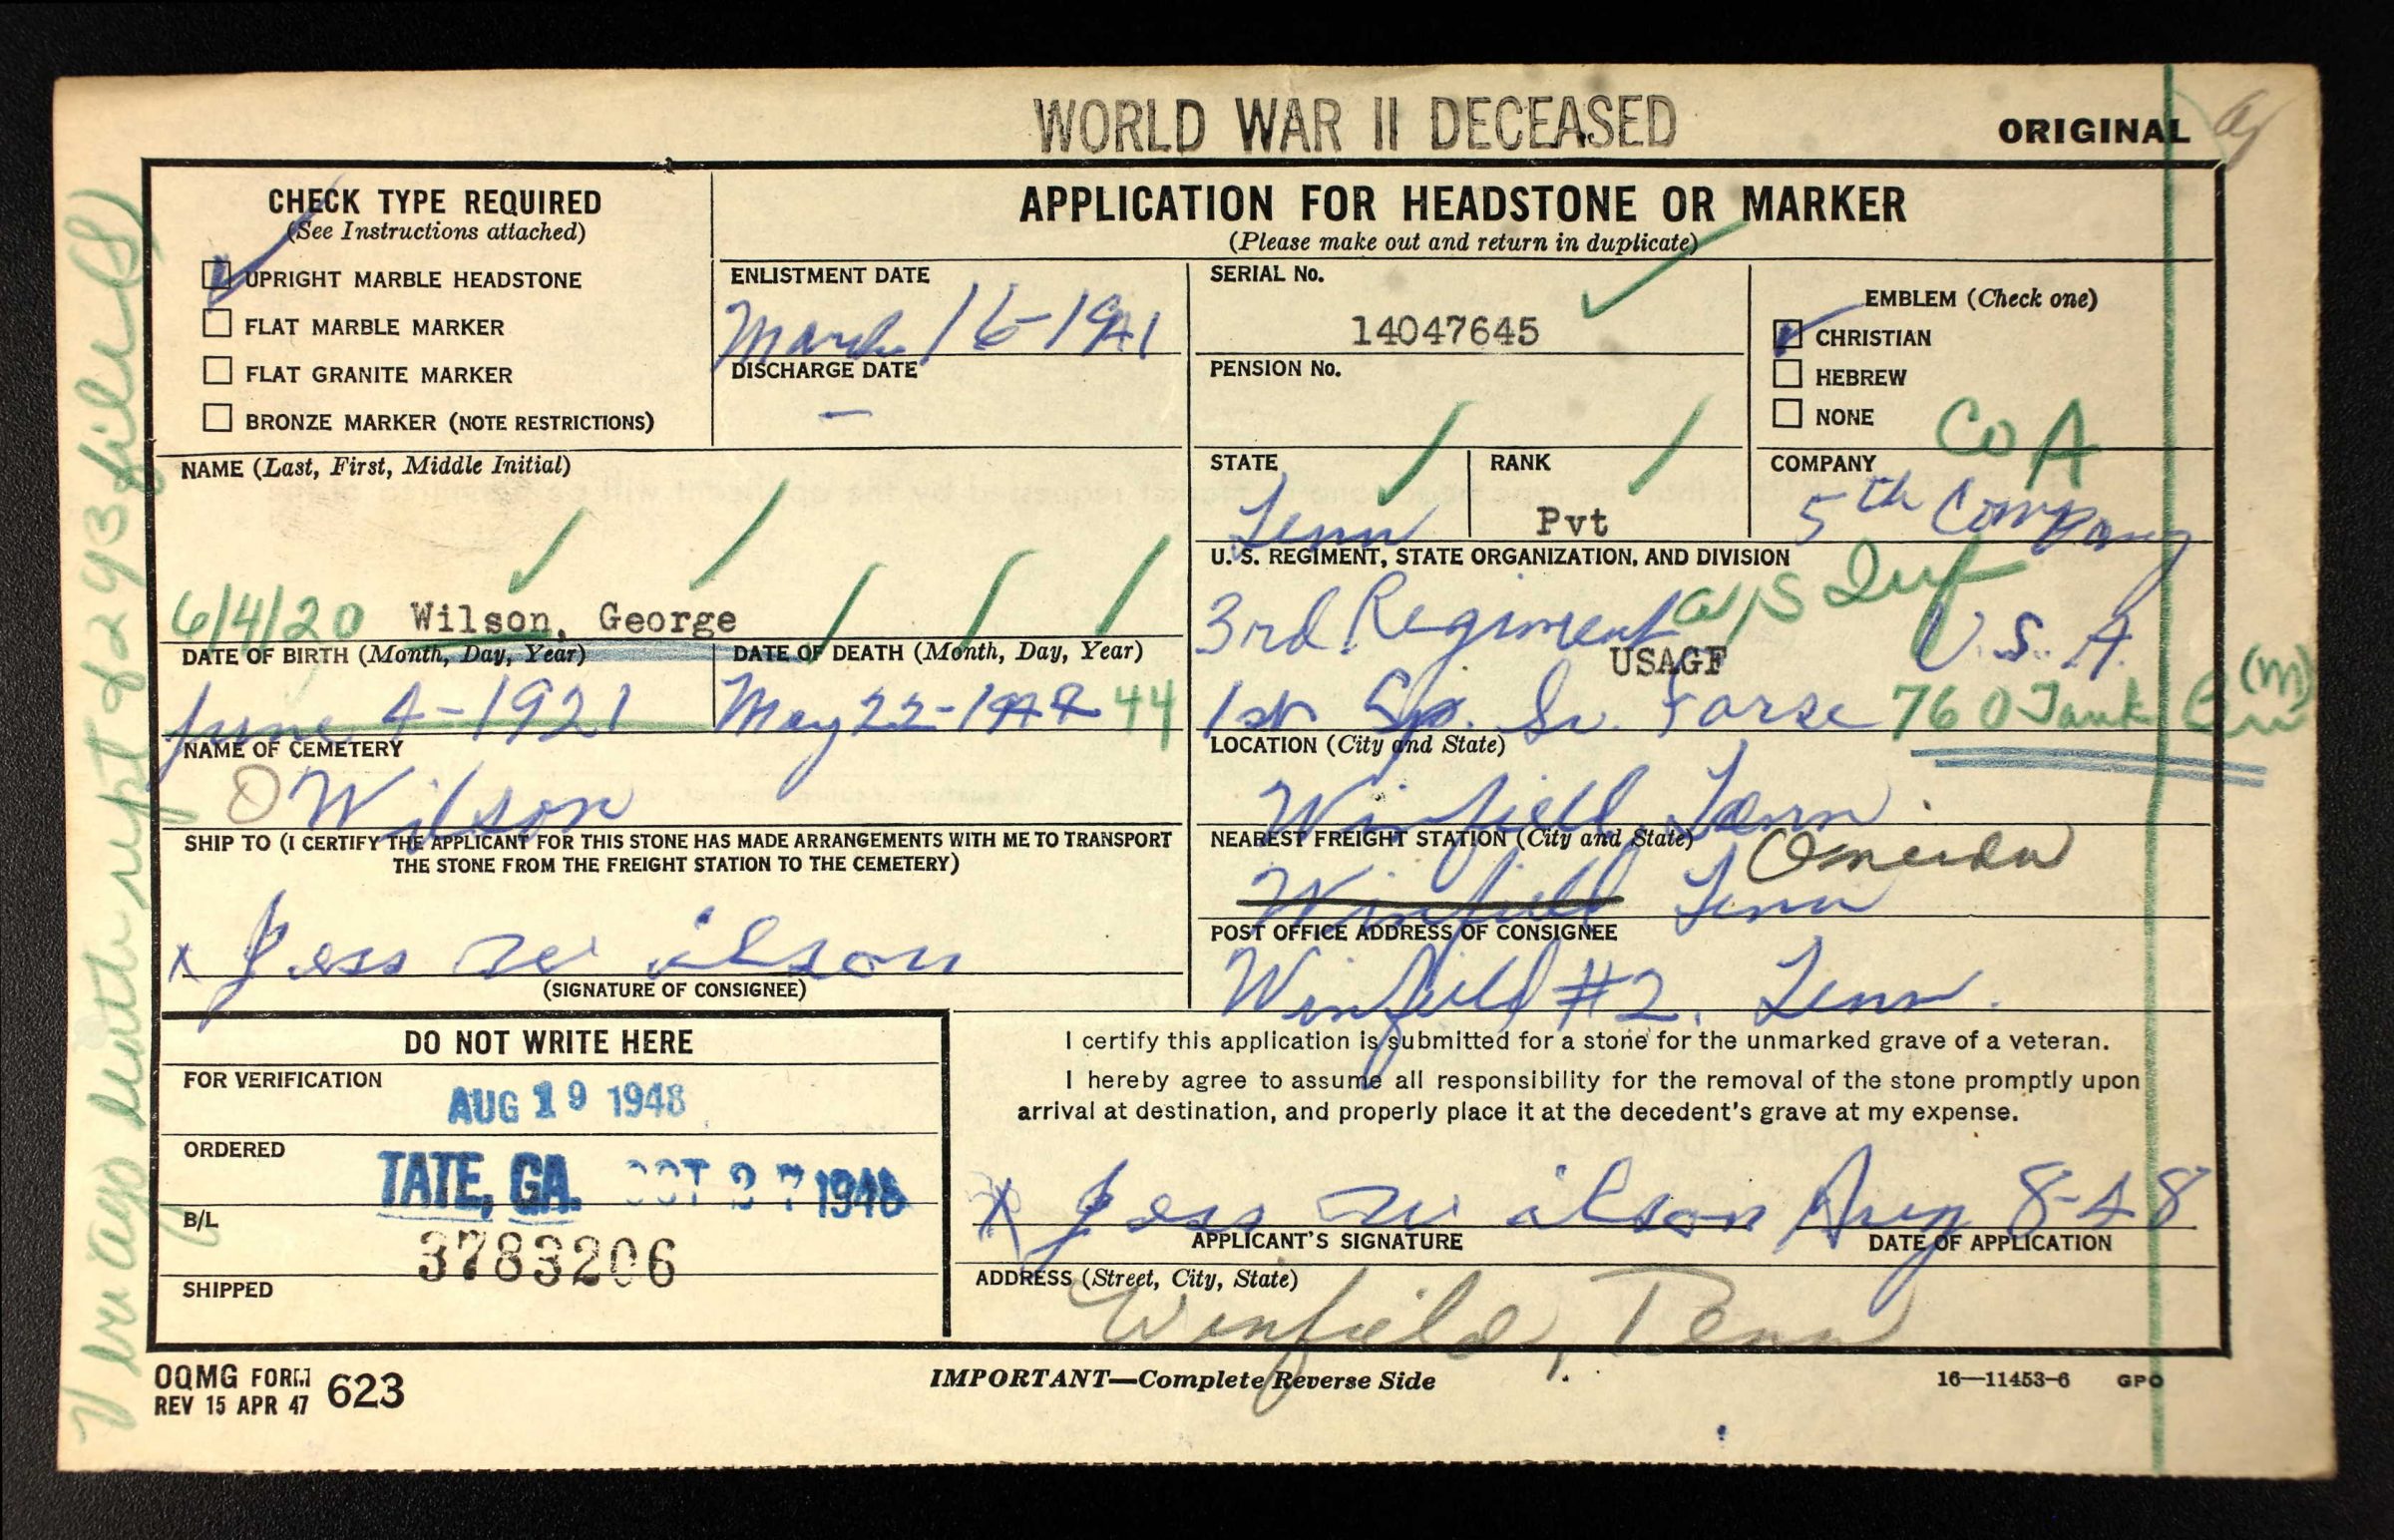 WORLD WAR II DECEASED
ORIGINAL
CHECK TYPE REQUIRED
(See Instructions attached)
UPRIGHT MARBLE HEADSTONE
FLAT MARBLE MARKER
FLAT GRANITE MARKER
BRONZE MARKER (NOTE RESTRICTIONS)
APPLICATION FOR HEADSTONE OR MARKER
(Please make out and return in duplicate)
ENLISTMENT DATE
March 16-1941
DISCHARGE DATE
—
SERIAL No.
14047645
PENSION No.
EMBLEM (Check one)
CHRISTIAN
HEBREW
NONE
Co A
NAME (Last, First, Middle Initial)
6/4/20 Wilson, George
STATE
Tenn
RANK
Pvt
COMPANY
5th Company
U. S. REGIMENT, STATE ORGANIZATION, AND DIVISION
3rd Regiment Inf U. S. A.
USAGF
1st Sp. Sv. Forse 760 Tank (M)
DATE OF BIRTH (Month, Day, Year)
June 4-1921
DATE OF DEATH (Month, Day, Year)
May 22-1942 44
NAME OF CEMETERY
Wilson
LOCATION (City and State)
Winfield Tenn.
SHIP TO (I CERTIFY THE APPLICANT FOR THIS STONE HAS MADE ARRANGEMENTS WITH ME TO TRANSPORT
THE STONE FROM THE FREIGHT STATION TO THE CEMETERY)
x Jess Wilson
(SIGNATURE OF CONSIGNEE)
NEAREST FREIGHT STATION (City and State)
Oneida
Winfield Tenn
POST OFFICE ADDRESS OF CONSIGNEE
Winfield #2, Tenn.
DO NOT WRITE HERE
FOR VERIFICATION
AUG 19 1948
ORDERED
TATE, GA. OCT 27 1948
B/L
3783206
SHIPPED
I certify this application is submitted for a stone for the unmarked grave of a veteran.
I hereby agree to assume all responsibility for the removal of the stone promptly upon
arrival at destination, and properly place it at the decedent's grave at my expense.
x Jess Wilson Aug 8-48
APPLICANT'S SIGNATURE
DATE OF APPLICATION
ADDRESS (Street, City, State)
Winfield, Tenn
OQMG FORM 623
REV 15 APR 47
IMPORTANT—Complete Reverse Side
16—11453-6 GPO
death rept 293 file